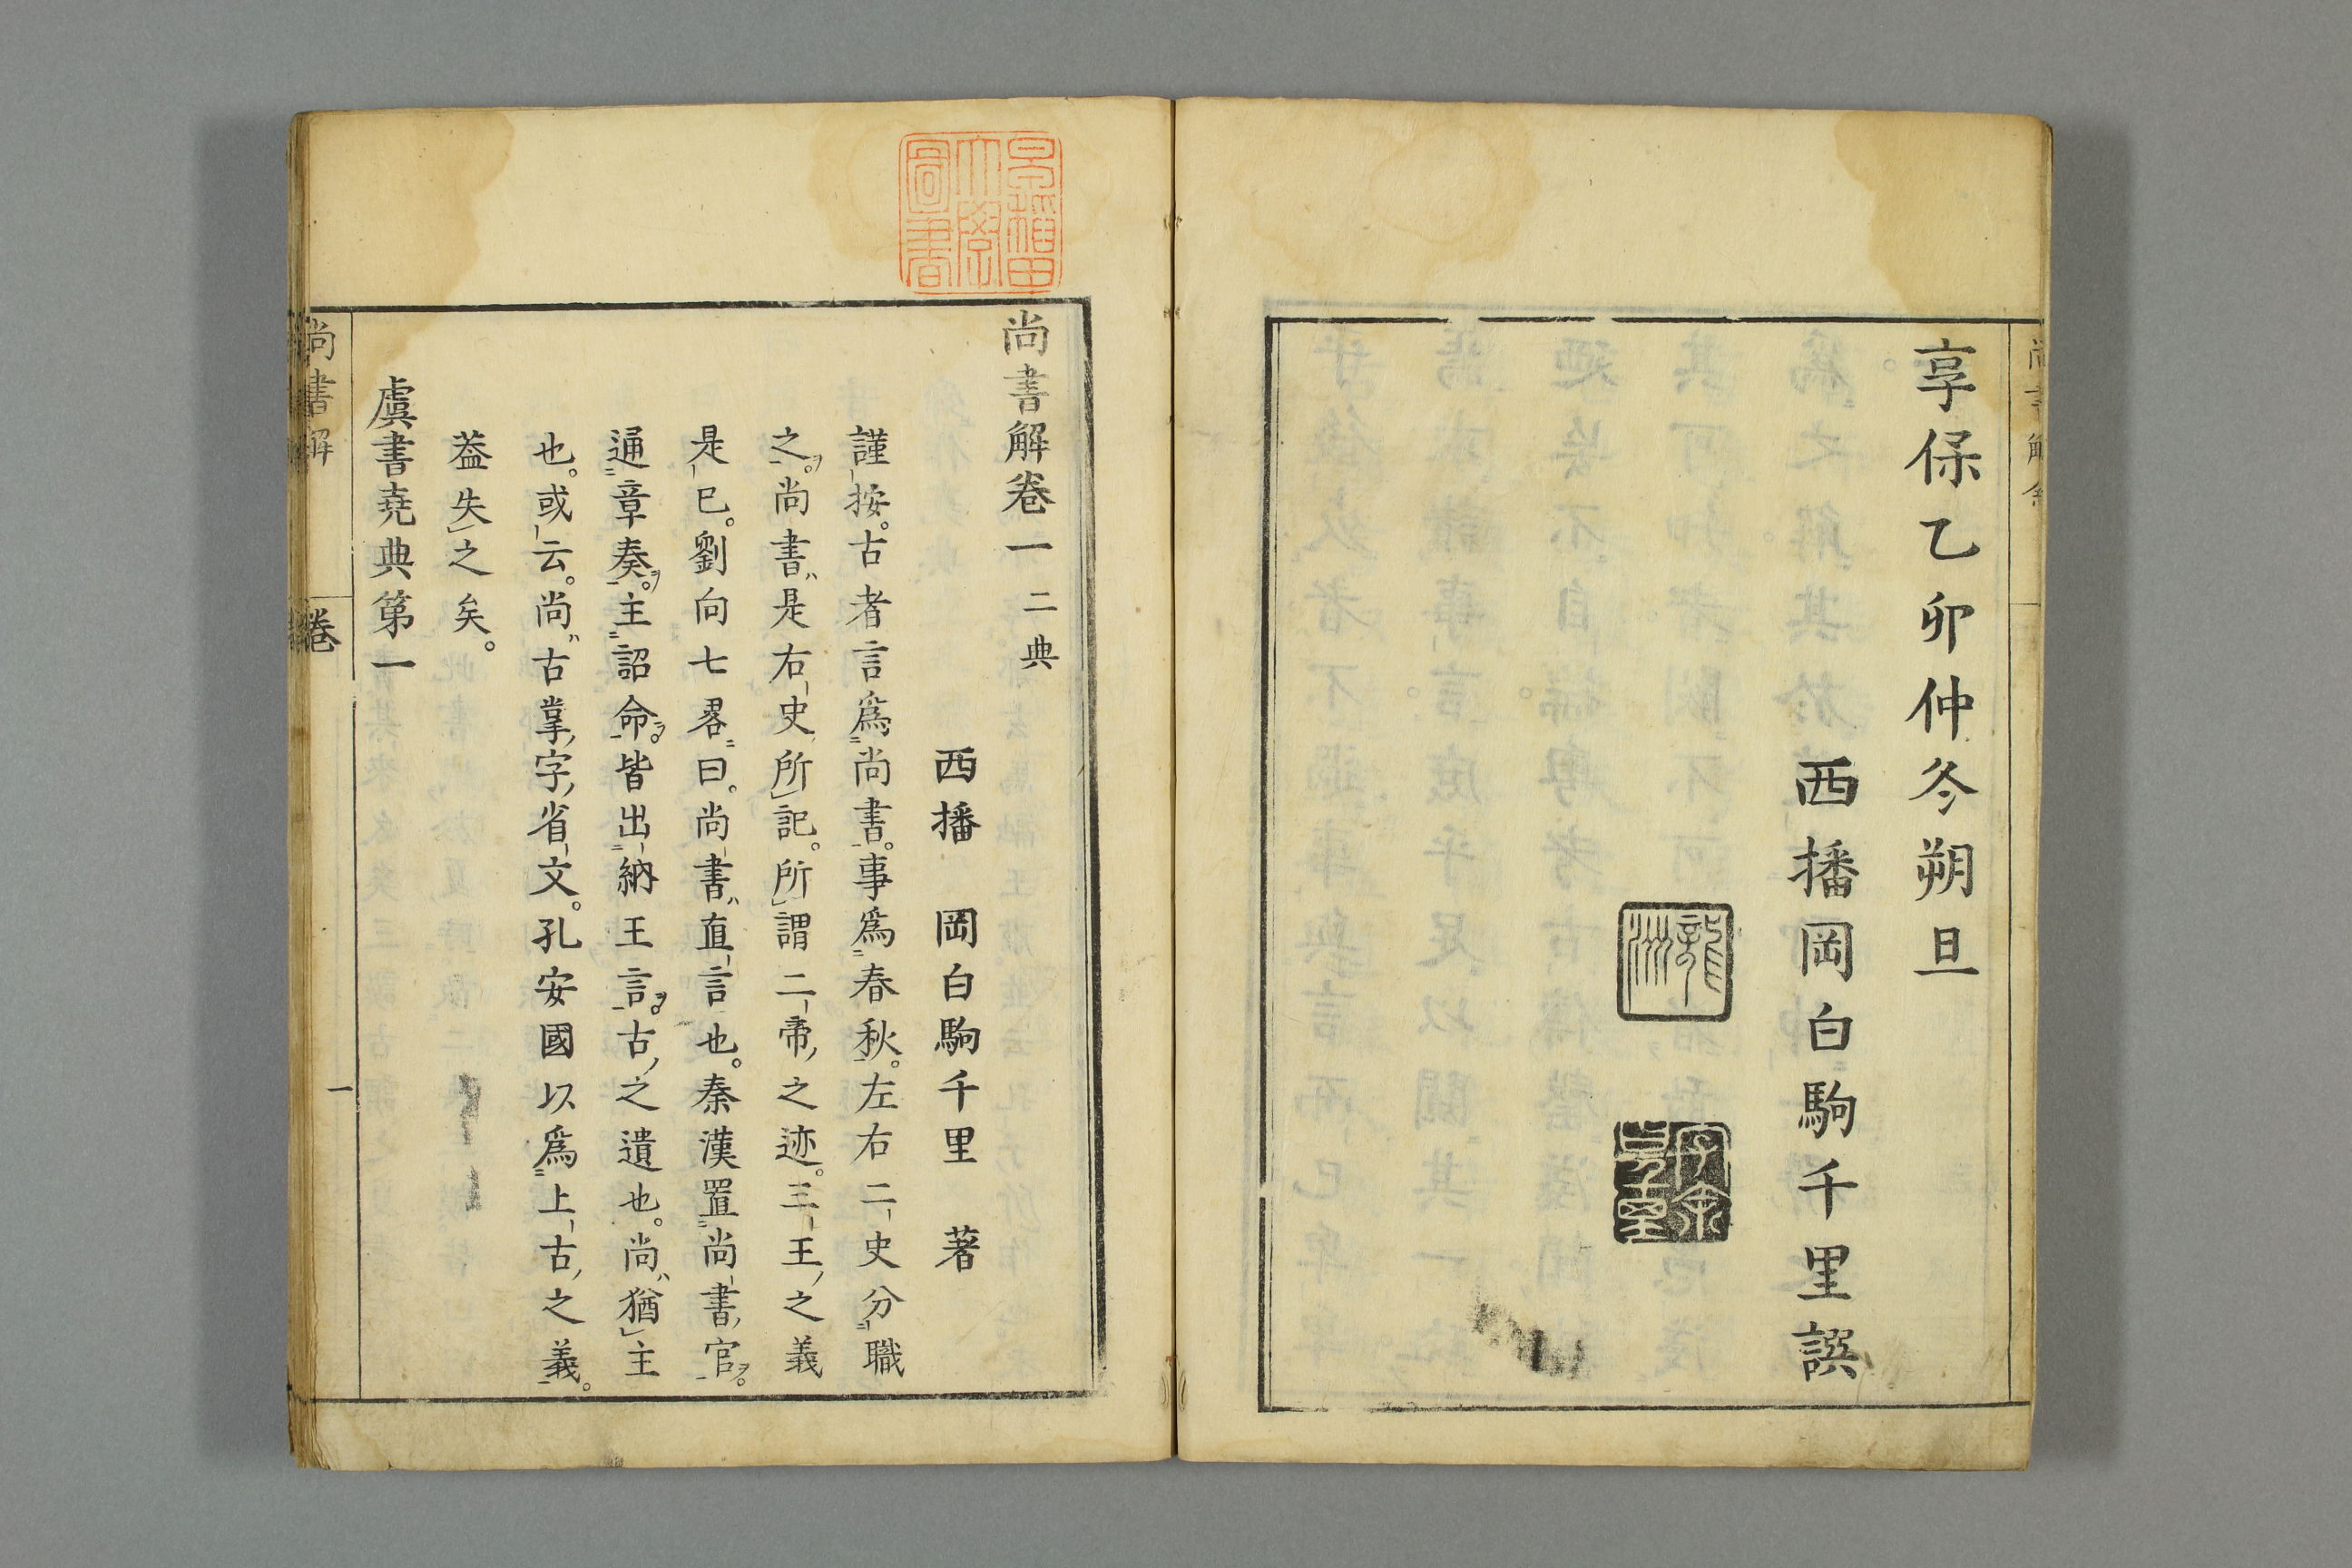 享保乙卯仲冬朔旦
西播岡白駒千里譔
龍洲
字余千里
早稲田大學圖書
尚書解卷一 二典
西播 岡白駒千里 著
謹按。古者言爲尚書。事爲春秋。左右二史分職
之。尚書ハ是右史所記。所謂二帝之迹。三王之義
是已。劉向七畧曰。尚書ハ直言也。秦漢置尚書官ヲ。
通章奏ヲ。主詔命ヲ。皆出納王言ヲ。古之遺也。尚ハ猶主
也。或云。尚ハ古掌字省文。孔安國以爲上古之義。
葢失之矣。
虞書堯典第一
尚書解 卷 一